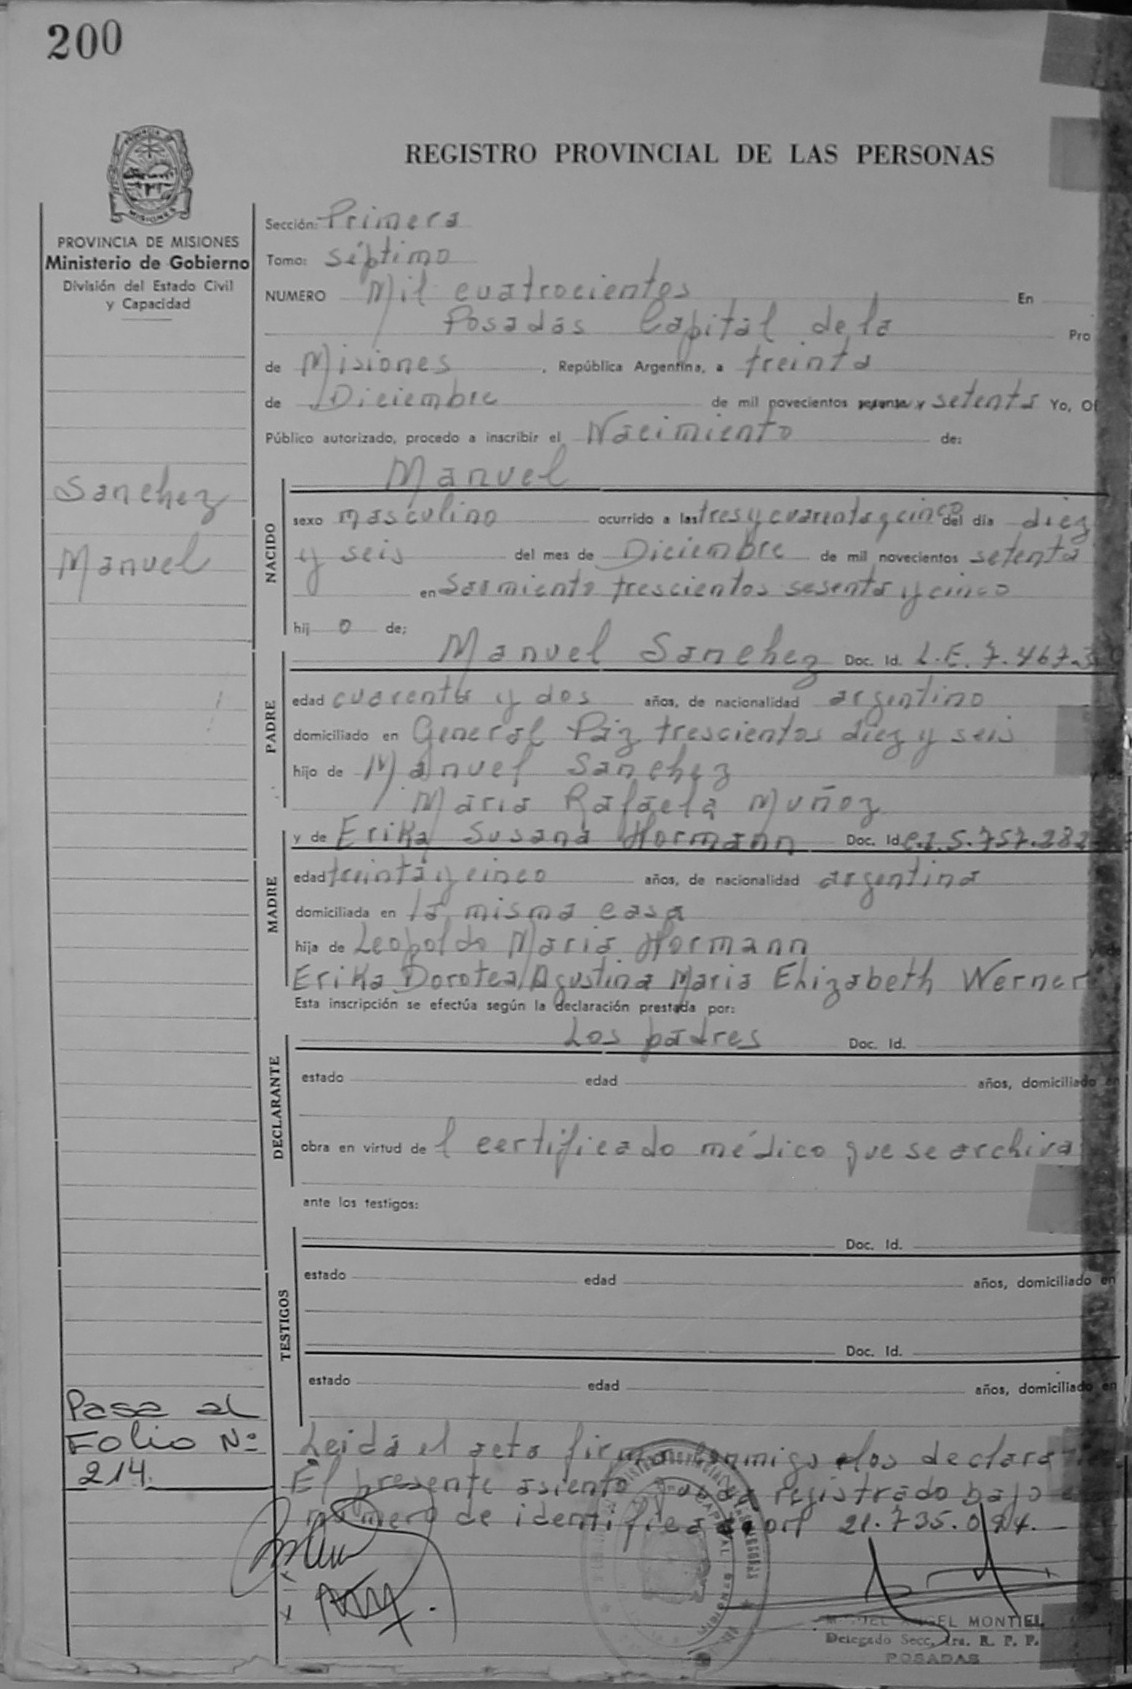 200
REGISTRO PROVINCIAL DE LAS PERSONAS
PROVINCIA DE MISIONES
Ministerio de Gobierno
División del Estado Civil
y Capacidad
Sanchez
Manuel
Pase al
Folio Nº
214.
Sección: Primera
Tomo: séptimo
NUMERO Mil cuatrocientos En
Posadas Capital de la Pro
de Misiones, República Argentina, a treinta
de Diciembre de mil novecientos setenta Yo, Of
Público autorizado, procedo a inscribir el Nacimiento de:
Manuel
NACIDO
sexo masculino ocurrido a las tres y cuarenta y cinco del día diez
y seis del mes de Diciembre de mil novecientos setenta
en Sarmiento trescientos sesenta y cinco
hij o de:
PADRE
Manuel Sanchez Doc. Id. L.E. 7.467.3
edad cuarenta y dos años, de nacionalidad argentino
domiciliado en General Paz trescientos diez y seis
hijo de Manuel Sanchez
Maria Rafaela Muñoz
MADRE
y de Erika Susana Hormann Doc. Id. C.I. 5.757.282
edad treinta y cinco años, de nacionalidad argentina
domiciliada en la misma casa
hija de Leopoldo Maria Hormann
Erika Dorotea Agustina Maria Elizabeth Werner
Esta inscripción se efectúa según la declaración prestada por:
DECLARANTE
Los padres Doc. Id.
estado edad años, domiciliado en
obra en virtud de l certificado médico que se archiva
ante los testigos:
TESTIGOS
Doc. Id.
estado edad años, domiciliado en
Doc. Id.
estado edad años, domiciliado en
Leida el acta firman conmigo los declara
El presente asiento queda registrado bajo e
número de identificacion 21.735.094.
MIGUEL ANGEL MONTIEL
Delegado Secc. 1ra. R. P. P.
POSADAS